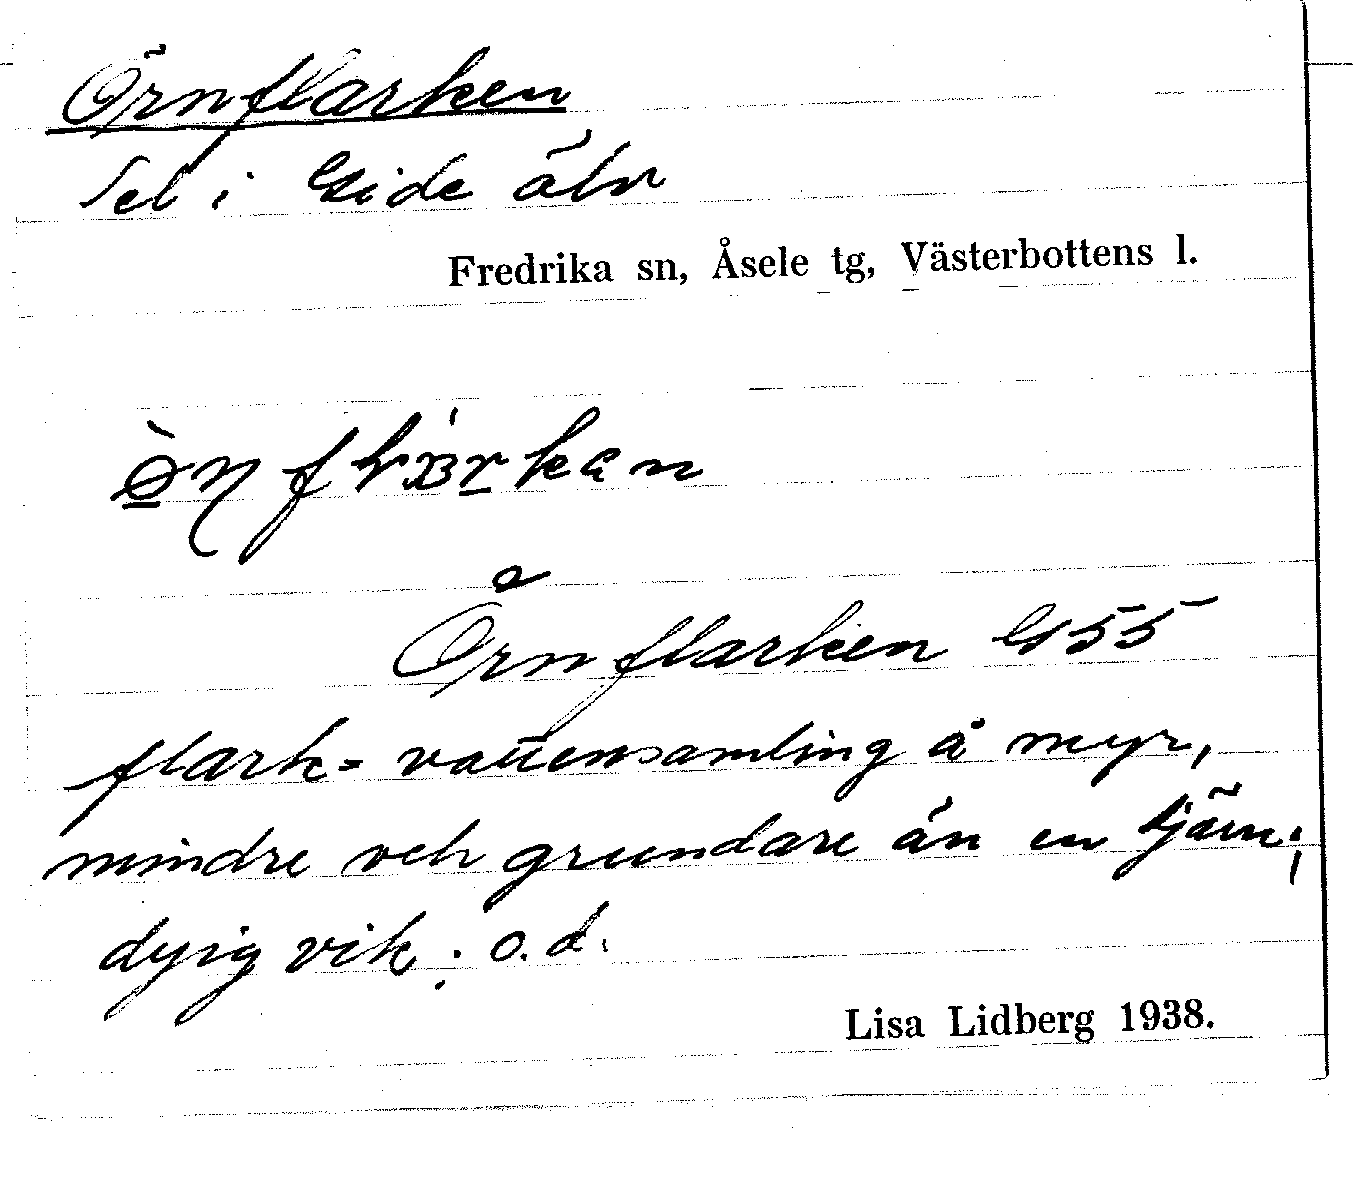 Örnflarken
Sel i Gide älv
Fredrika sn, Åsele tg, Västerbottens l.
Örnflarken G 55
flark = vattensamling å myr,
mindre och grundare än en tjärn;
dyig vik. o.d.
Lisa Lidberg 1938.